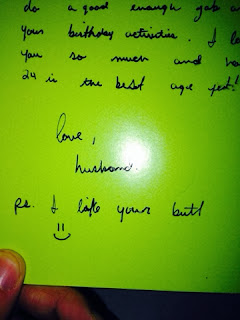 do a good enough job
your birthday activities. I
you so much and
24 is the best age yet!
love,
husband.
ps. I like your butt